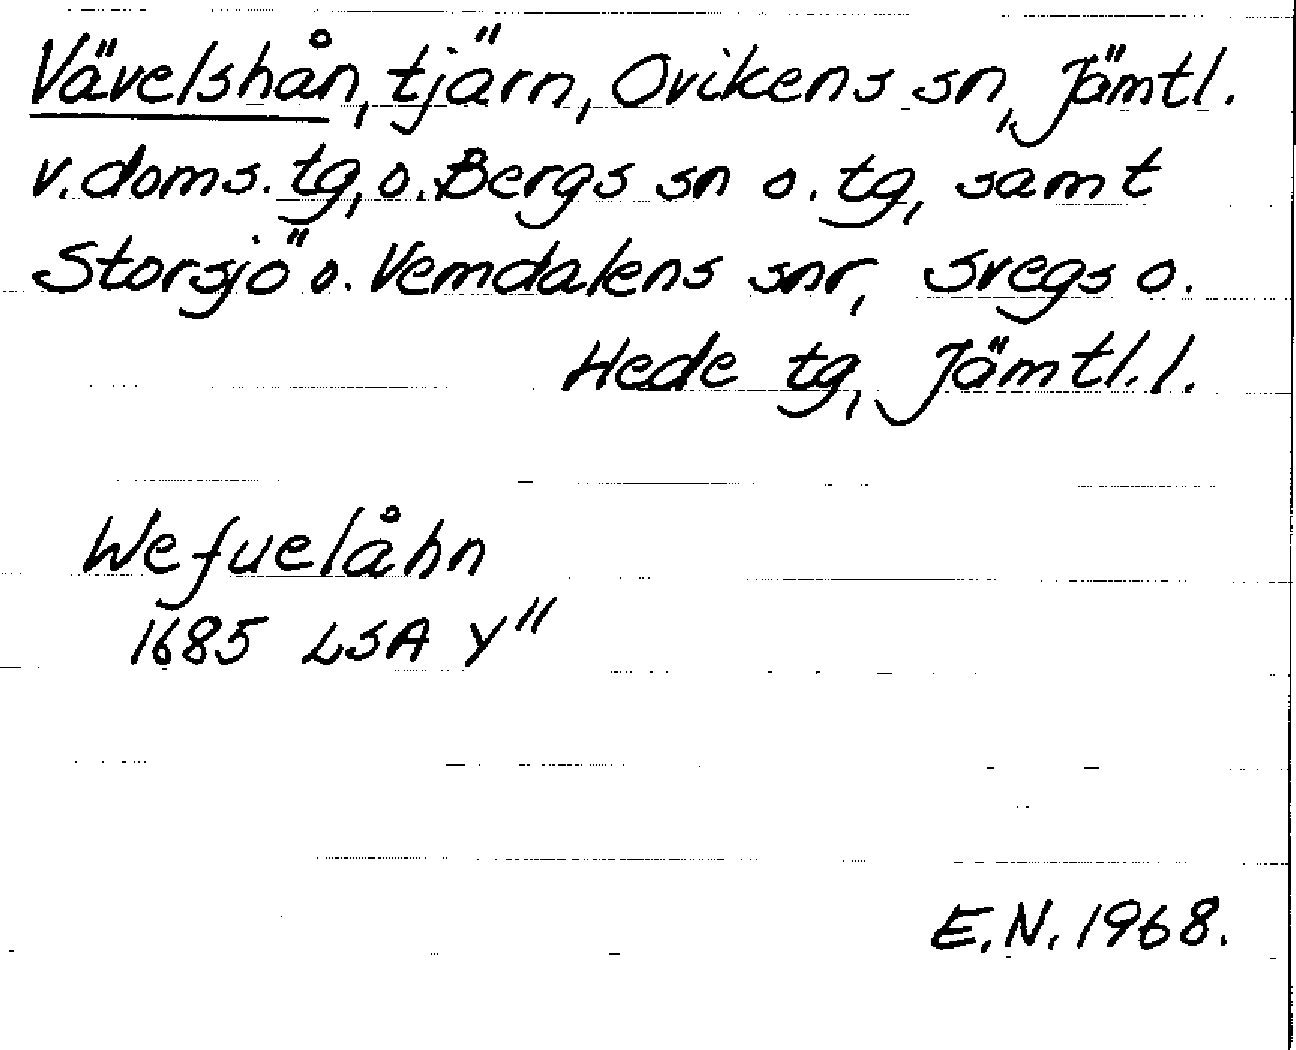 Vävelshån, tjärn, Ovikens sn, Jämtl.
v. doms. tg, o. Bergs sn o. tg, samt
Storsjö o. Vemdalens snr, Svegs o.
Hede tg, Jämtl. l.
Wefuelåhn
1685 LSA Y"
E.N. 1968.